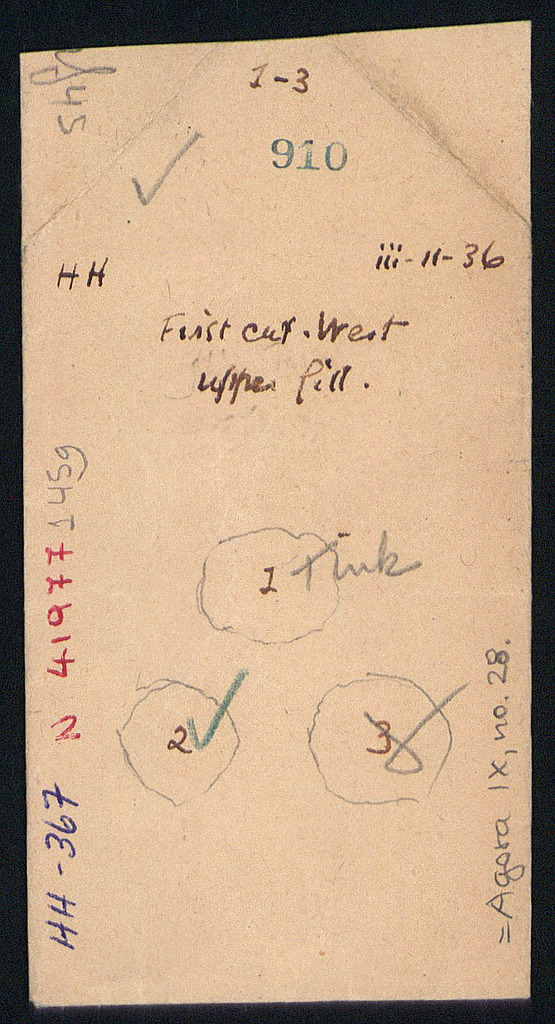 1-3
910
HH
iii-11-36
First cut. West
upper fill.
1
2
3
HH-367 N 41977
= Agora IX, no. 28.